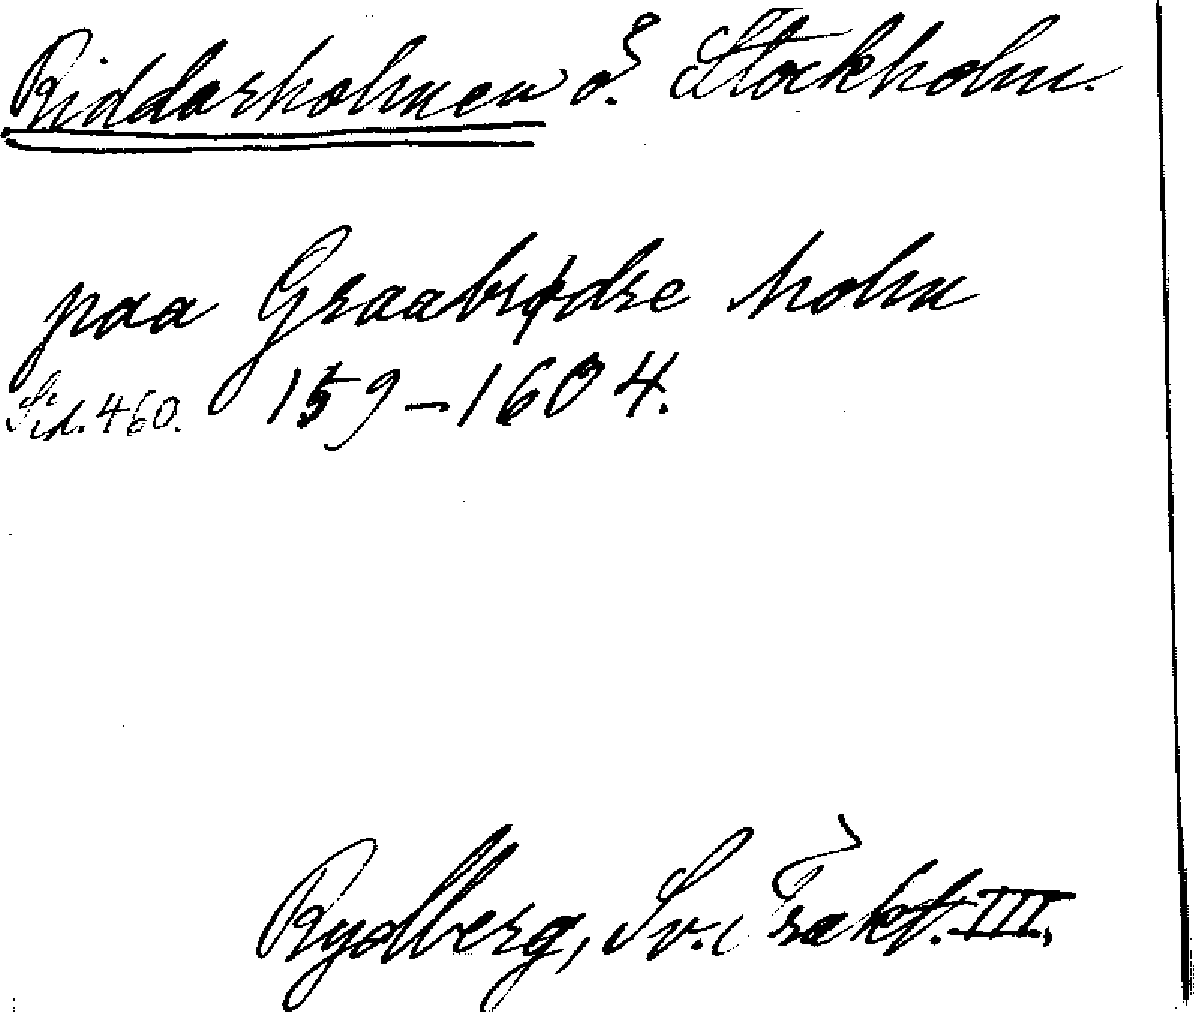 Riddarholmen o. Stockholm.
paa Graabrødre holm
Sid. 460. 159-1604.
Rydberg, Sv. Trakt. III,